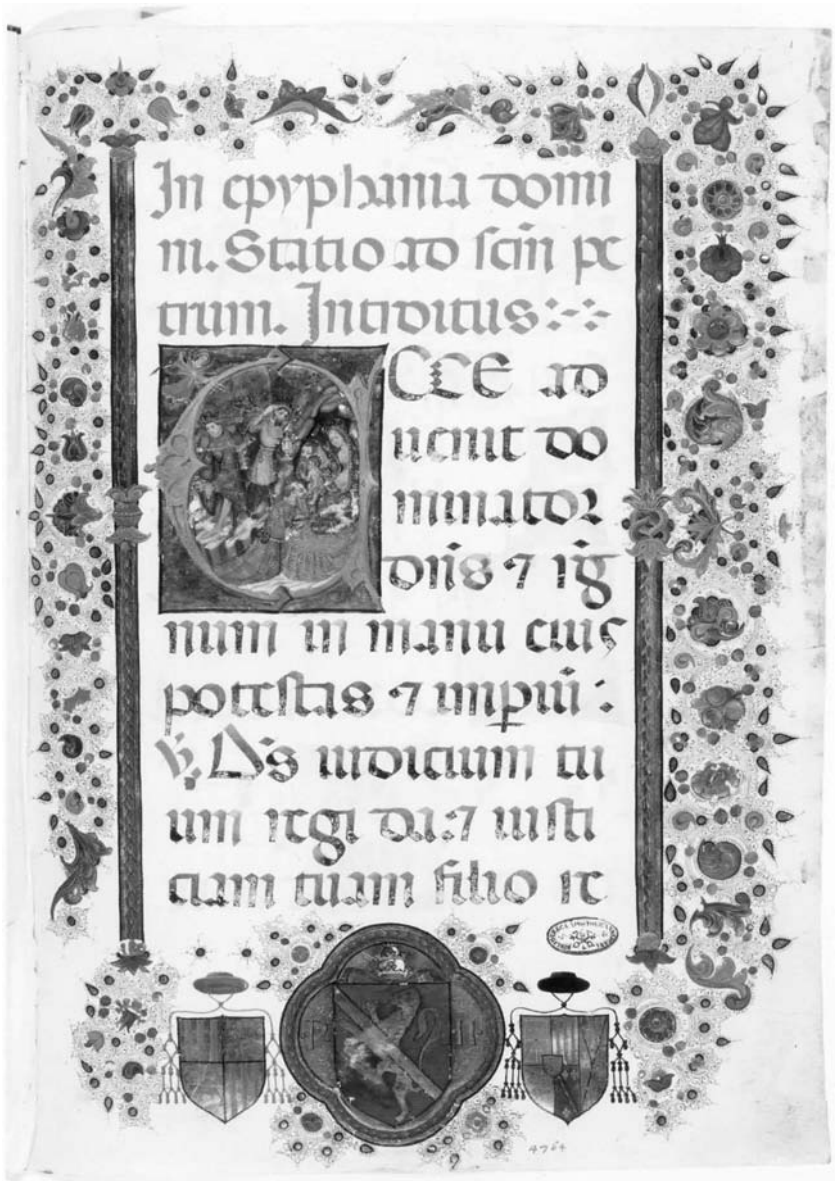 In epyphania domi
ni. Statio ad scm̄ pe
trum. Introitus
ECCE ad
uenit do
minator
dn̄s ⁊ reg
num in manu eius
potestas ⁊ imꝑiū :
Ds̄ iudicium tu
um regi da: ⁊ iusti
ciam tuam filio re
4764